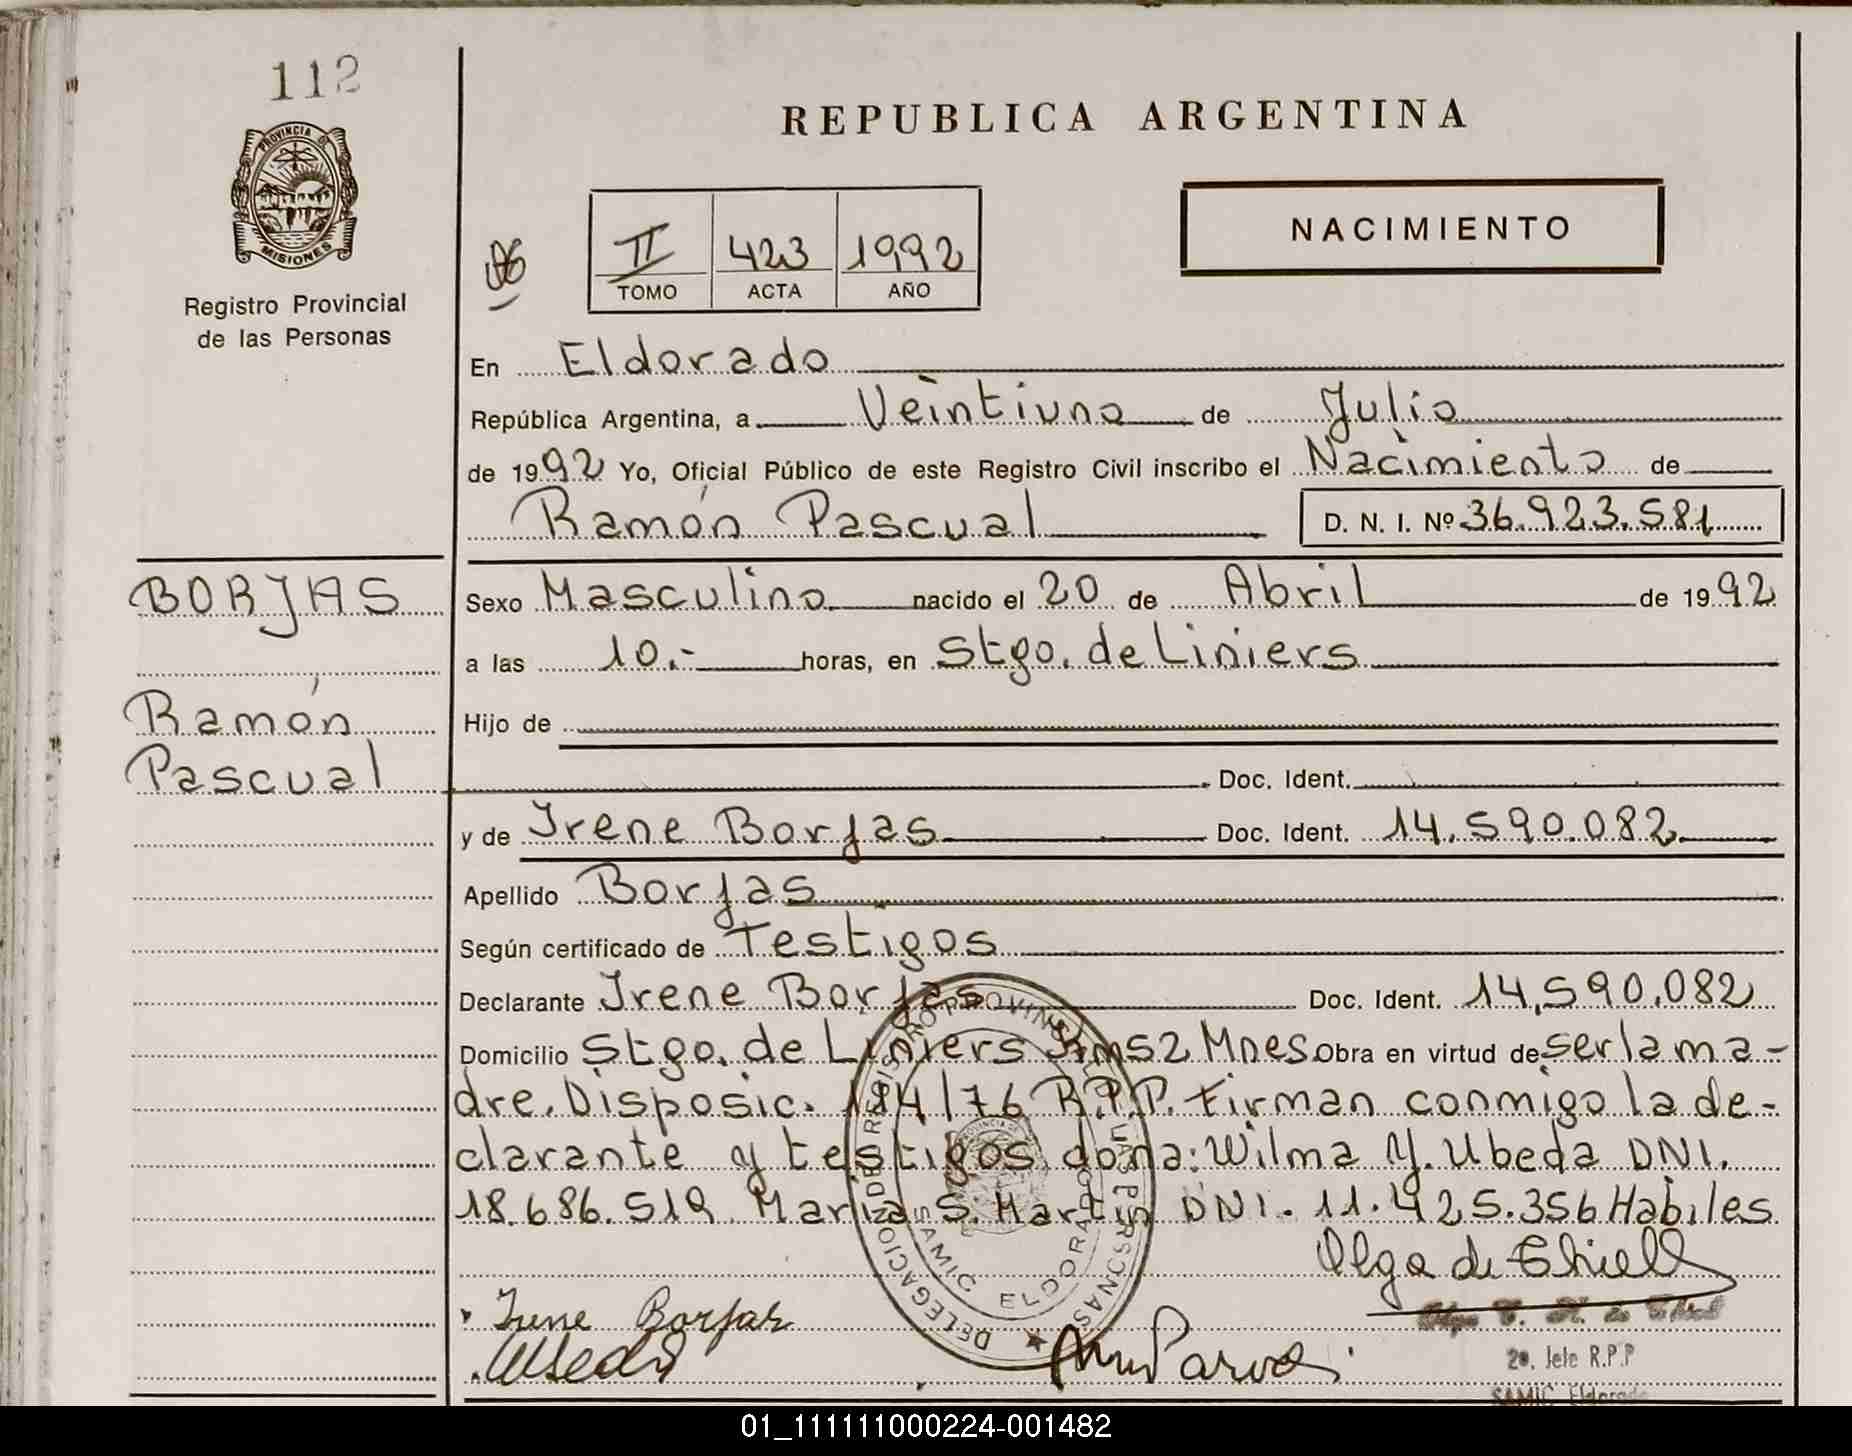 112
PROVINCIA DE
MISIONES
Registro Provincial
de las Personas
REPUBLICA ARGENTINA
NACIMIENTO
II 423 1992
TOMO ACTA AÑO
En Eldorado
República Argentina, a Veintiuno de Julio
de 1992 Yo, Oficial Público de este Registro Civil inscribo el Nacimiento de
Ramón Pascual D. N. I. Nº 36.923.581
BORJAS
Ramón
Pascual
Sexo Masculino nacido el 20 de Abril de 1992
a las 10.- horas, en Stgo. de Liniers
Hijo de
Doc. Ident.
y de Irene Borjas Doc. Ident. 14.590.082
Apellido Borjas
Según certificado de Testigos
Declarante Irene Borjas Doc. Ident. 14.590.082
Domicilio Stgo. de Liniers Mnes. Obra en virtud de ser la ma-
dre. Disposic. 184/76 R.P.P. Firman conmigo la de-
clarante y testigos doña: Wilma Y. Ubeda DNI.
18.686.519 Maria S. Martin DNI. 11.425.356 Habiles
DELEGACION DE REGISTRO PROVINCIAL DE LAS PERSONAS
SAMIC ELDORADO
Olga de Thiell
Irene Borjas
2º. Jefe R.P.P
SAMIC Eldorado
01_111111000224-001482